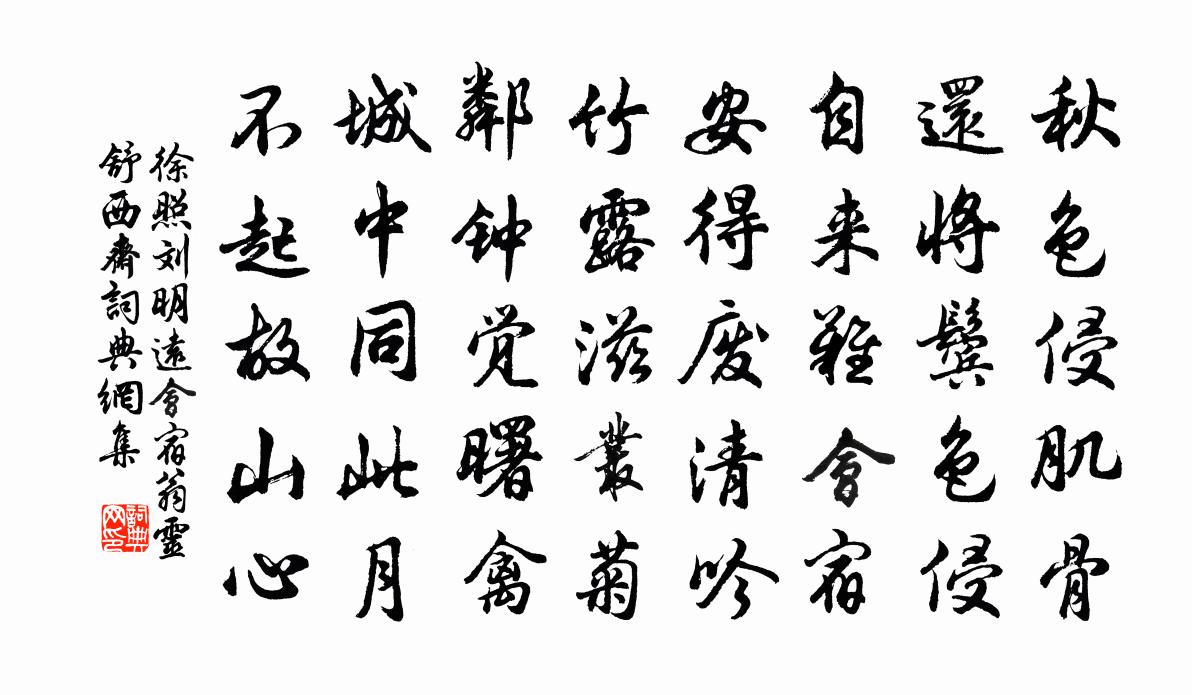 秋色侵肌骨
還將鬢色侵
自来難會宿
安得废清吟
竹露滋叢菊
鄰钟觉曙禽
城中同此月
不起故山心
徐照刘明遠會宿翁靈
舒西齋詞典網集
詞典网印